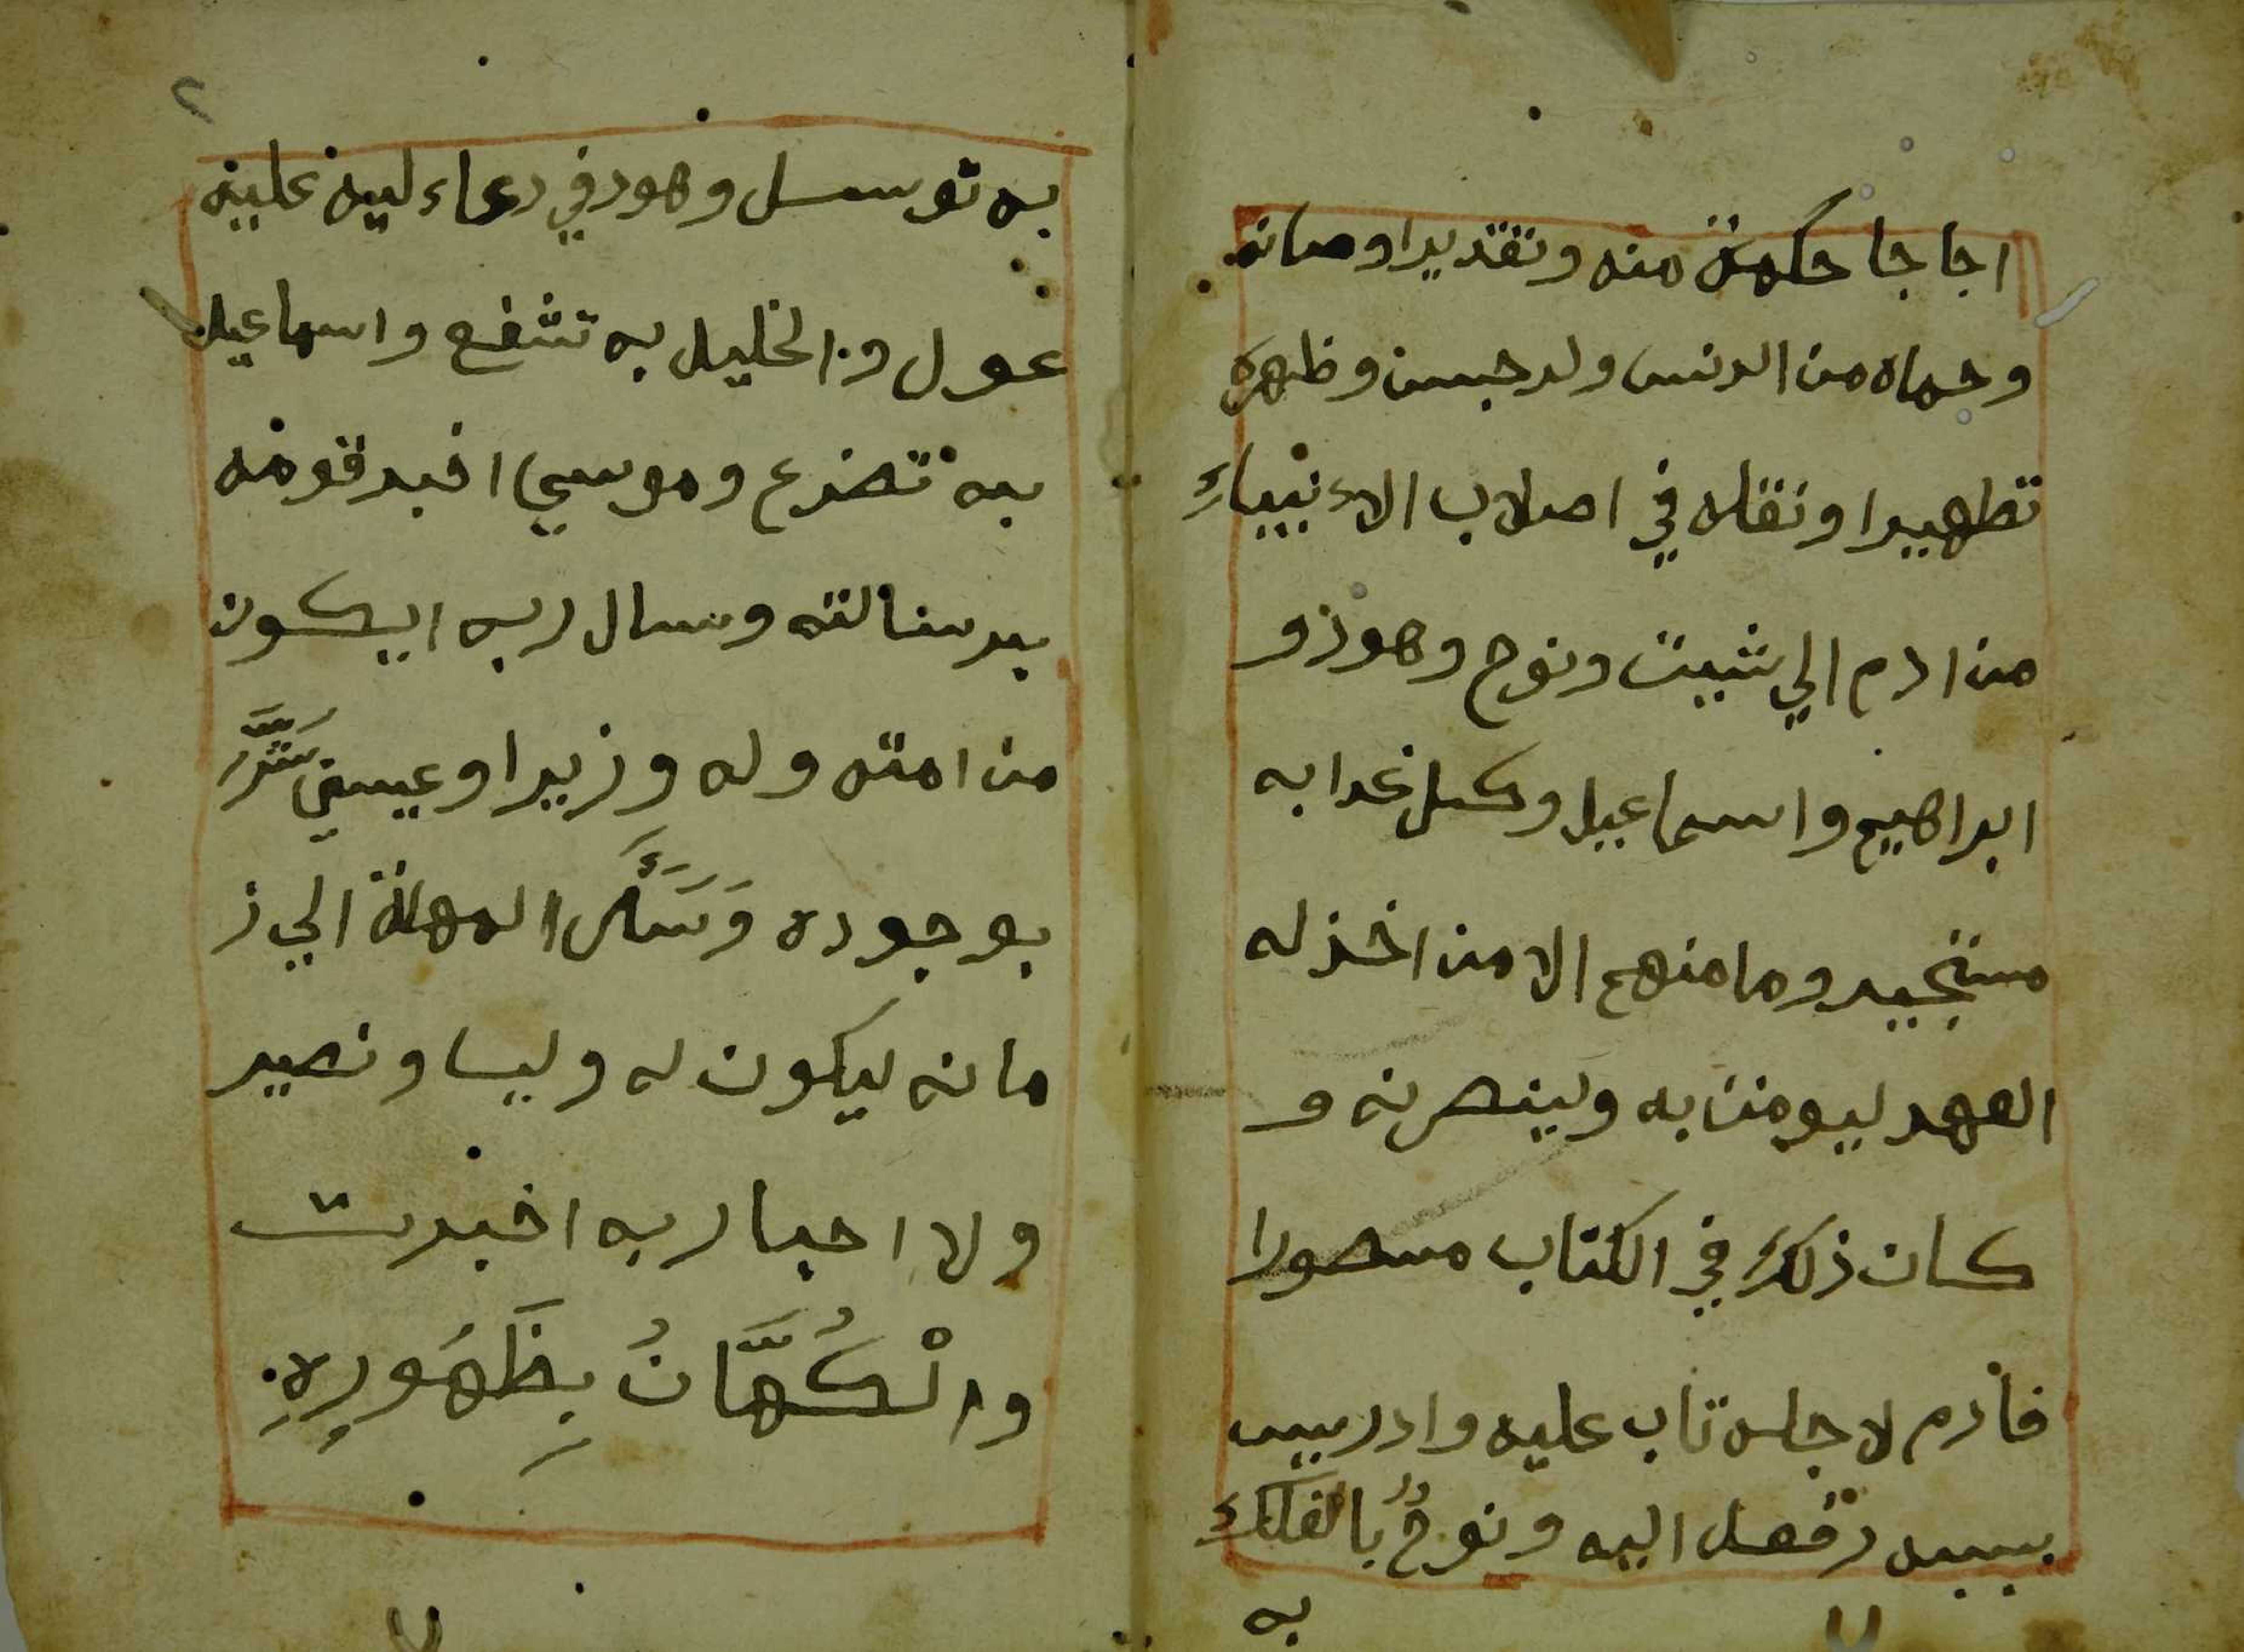 اجاجا حكمة منه وتقديرا وصانه
وحماه من الدنس ولد حبسن وظهره
تطهيرا ونقله في اصلاب الاءنبياء
من ادم الي شيت ونوح وهوذ و
ابراهيم واسماعيل وكل غدا به
مستجير وما منهم الا من اخذ له
العهد ليومنن به ولينصرنه و
كان ذلك في الكتاب مسصورا
فأدم لاجله تاب عليه وادريس
بسببه رفعه اليه ونوح بالفلك
به
٢
به توسسل وهود في دعاءليه علينه
عول وزالخليل به تشفع واسماعيل
به تضرع وموسي اخبر قومه
برسالته وسال ربه ايكون
من امته وله وزيرا وعيسي بَشَّرَ
بوجوده وَسَئَل المهلة الي ز
مانه ليكون له وليا ونصير
ولا احبار به اخبرت
والْكُهَّانُ بِظَهُورِهِ